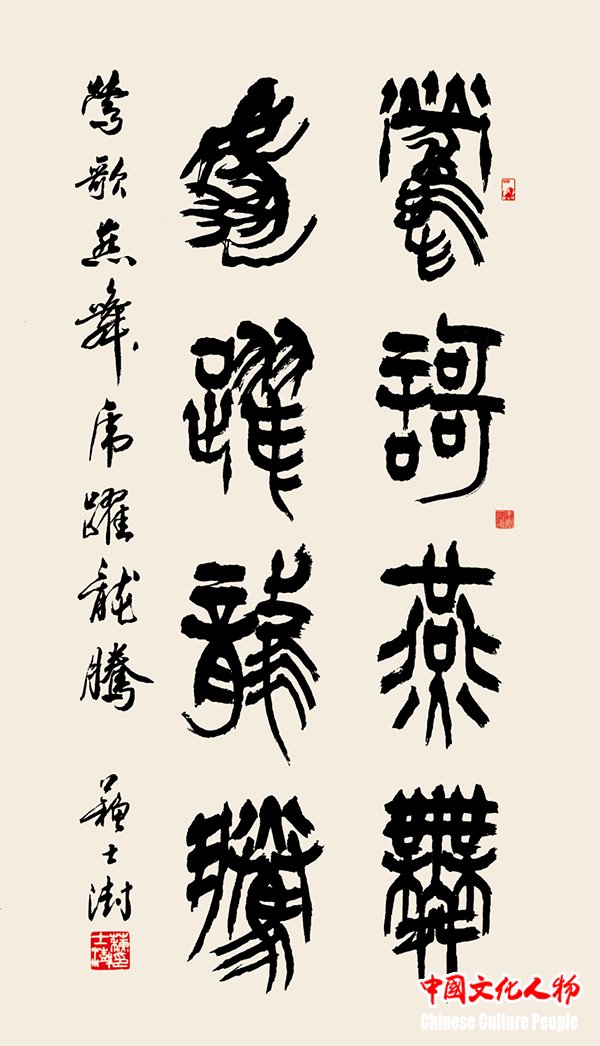 鶯謌燕舞
虎躍龍騰
鶯歌燕舞虎躍龍騰 蘇士澍
中國文化人物
Chinese Culture People